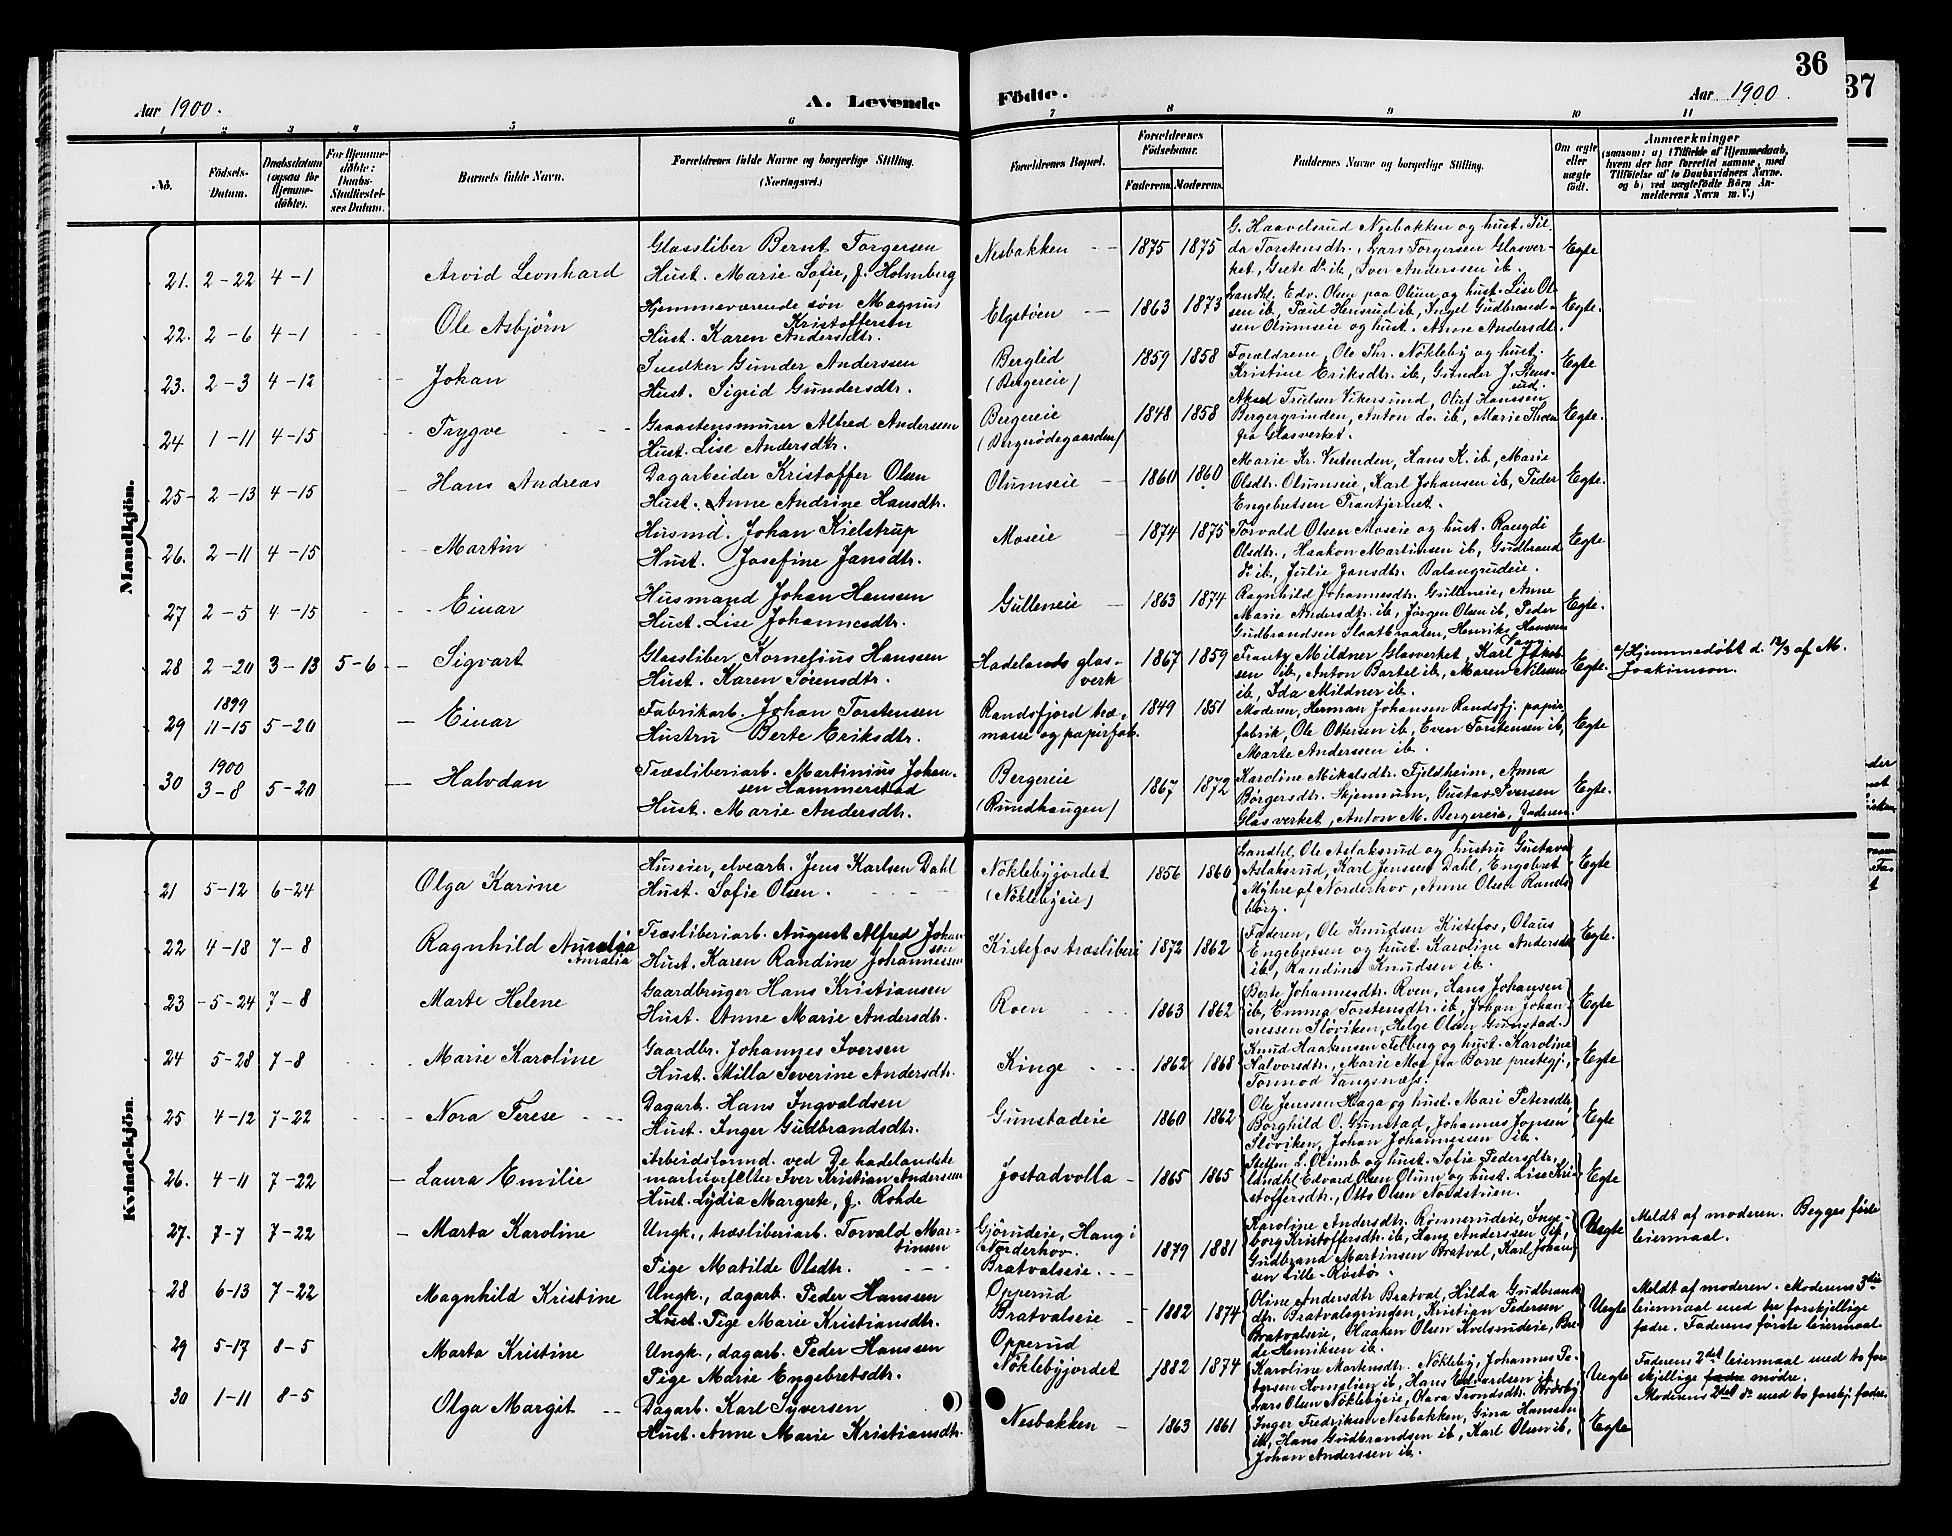 36
37
Aar 1900.
A. Levende
Födte.
Aar 1900.
1 2 3 4 5 6 7 8 9 10 11
No.
Födsels-
Datum.
Daabsdatum
(ogsaa for
Hjemme-
døbte).
For Hjemme-
døbte:
Daabs-
Stadfæstel-
ses Datum.
Barnets fulde Navn.
Forældrenes fulde Navne og borgerlige Stilling.
(Næringsvei.)
Forældrenes Bopæl.
Forældrenes
Födselsaar.
Faderens. Moderens.
Faddernes Navne og borgerlige Stilling.
Om ægte
eller
uægte
født.
Anmærkninger
(saasom: a) i Tilfælde af Hjemmedaab,
hvem der har forrettet samme, med
Tilföielse af to Daabsvidners Navne,
og b) ved uægtefödte Börn An-
melderens Navn m. V.)
Mandkjön.
21. 2-22 4-1 Arvid Leonhard
Glassliber Bernt Torgersen
Hust. Marie Sofie, f. Holmberg
Nesbakken 1875 1875
G. Haavelsrud Nesbakken og hust. Til-
da Torstensdtr., Lars Torgersen Glasver-
ket, Grete do ib, Iver Anderssen ib.
Egte
22. 2-6 4-1 Ole Asbjørn
Hjemmeværende søn Magnus
Kristoffersen
Hust. Karen Andersdtr.
Elgstøen 1863 1873
Landhl. Edv. Olsen paa Olum, og hust. Lise Ol-
sen ib, Paul Hensrud ib, Ingel Gudbrand-
sen Olumseie og hust. Anne Andersdtr.
Egte.
23. 2-3 4-12 Johan
Snedker Gunder Anderssen
Hust. Sigrid Gundersdtr.
Berglid
(Bergereie)
1859 1858
Forældrene, Ole Thr. Nökleby og hust.
Kristine Eriksdtr. ib, Gunder J. Hens-
rud.
Egte
24 1-11 4-15 Trygve
Graastensmurer Alfred Anderssen
Hust. Lise Andersdtr.
Bergereie
(Bergsødegaarden)
1848 1858
Aksel Trulsen Vikersund, Oluf Hanssen
Bergergrinden, Anton do. ib, Marie Thoen
fra Glasverket.
Egte.
25 2-13 4-15 Hans Andreas
Dagarbeider Kristoffer Olsen
Hust. Anne Andrine Hansdtr.
Olumseie 1860 1860
Marie Kr. Vestenden, Hans K. ib, Marie
Olsdtr. Olumseie, Karl Johansen ib, Peder
Engebretsen Trantjernet.
Egte.
26. 2-11 4-15 Martin
Husmd. Johan Kielstrup
Hust. Josefine Jansdtr.
Moseie 1874 1875
Torvald Olsen Moseie og hust. Rangdi
Olsdtr., Haakon Martinsen ib, Gudbrand
do ib, Julie Jansdtr. Dalangrudeie.
Egte
27 2-5 4-15 Einar
Husmand Johan Hanssen
Hust. Lise Johannesdtr.
Gulleneie 1863 1874
Ragnhild Johannesdtr. Gulleneie, Anne
Marie Andersdtr. ib, Jörgen Olsen ib, Peder
Gudbrandsen Slaatbraaten, Henrik Hanssen
Vang.
Egte.
28 2-20 3-13 5-6 Sigvart
Glassliber Kornelius Hanssen
Hust. Karen Sørensdtr.
Hadelands glas-
verk
1867 1859
Frantz Mildner Glasverket, Karl Jakob-
sen ib, Anton Bartel ib, Maren Nilsen
ib, Ida Mildner ib.
Egte.
a/ Hjemmedöbt d. 13/3 af M.
Joakimson.
29 1899
11-15 5-20 Einar
Fabrikarb. Johan Torstensen
Hustru Berte Eriksdtr.
Randsfjord træ-
masse og papirfab.
1849 1851
Moderen, Herman Johansen Randsfj. papir
fabrik, Ole Ottersen ib, Even Torstensen ib,
Marte Anderssen ib.
Egte
30 1900
3-8 5-20 Halvdan
Træsliberiarb. Martinius Johan-
sen Hammerstad
Hust. Marie Andersdtr.
Bergereie
(Rundhaugen)
1867 1872
Karoline Mikalsdtr. Fjeldheim, Anna
Borgersdtr. Skjennum, Gustav Iversen
Glasverket, Anton M. Bergereie, Faderen.
Egte.
Kvindekjön.
21 5-12 6-24 Olga Karine
Huseier, elvearb. Jens Karlsen Dahl
Hust. Sofie Olsen.
Nöklebyjordet
(Nöklebyeie)
1856 1860
Landhl. Ole Aslaksrud og hustru Gustava
Aslaksrud, Karl Jenssen Dahl, Engebret
Myhre af Norderhov, Anne Olsen Rands-
borg.
Egte
22 4-18 7-8 Ragnhild Amalia
Amalia
Træsliberiarb. August Alfred Johan-
sen
Hust. Karen Randine Johannessen
Kistefos træsliberi 1872 1862
Faderen, Ole Knudsen Kistefos, Olaus
Engebretsen og hust. Karoline Andersdtr
ib, Randine Knudsen ib.
Egte.
23 5-24 7-8 Marte Helene
Gaardbruger Hans Kristiansen
Hust. Anne Marie Andersdtr.
Roen 1863 1862
Berte Johannesdtr. Roen, Hans Johansen
ib, Emma Torstensdtr. ib, Johan Johan-
nessen Slöviken, Helge Olsen Gunstad.
Egte
24 5-28 7-8 Marie Karoline
Gaardbr. Johannes Iversen
Hust. Milla Severine Andersdtr.
Kinge 1862 1868
Knud Haakensen Felberg og hust. Karoline
Halvorsdtr., Marie Moe fra Borre prestegj.,
Tormod Vangsnæss.
Egte
25 4-12 7-22 Nora Terese
Dagarb. Hans Ingvaldsen
Hust. Inger Gudbrandsdtr.
Gunstadeie 1860 1862
Ole Jenssen Haga og hust. Mari Petersdtr,
Borghild O. Gunstad, Johannes Jonsen
Slöviken, Johan Johannessen ib.
Egte
26. 4-11 7-22 Laura Emilie
Arbeidsformd. ved De hadelandske
markuefelter Iver Kristian Anderssen
Hust. Lydia Margrete, f. Rohde
Jostadvolla 1865 1865
Steffen L. Olimb og hust. Sofie Pedersdtr,
landhl. Edvard Olsen Olum og hust. Lise Kri-
stoffersdtr., Otto Olsen Nordstruen.
Egte
27. 7-7 7-22 Marta Karoline
Ungk., træsliberiarb. Torvald Mar-
tinsen
Pige Matilde Olsdtr.
Gjörudeie, Haug i
Norderhov.
Bratvalseie.
1879 1881
Karoline Andersdtr. Rönnerudeie, Inge-
borg Kristoffersdtr. ib, Hans Anderssen ib,
Gudbrand Martinsen Bratval, Karl Johan-
sen Lille-Röstö.
Uegte
Meldt af moderen. Begges förste
leiermaal.
28 6-13 7-22 Magnhild Kristine
Ungk., dagarb. Peder Hanssen
Hust. Pige Marie Kristiansdtr.
Opperud
Bratvalseie
1882 1874
Oline Andersdtr Bratval, Hilda Gudbrands-
dtr. Bratvalsgrinden, Kristian Pedersen
Bratvalseie, Haaken Olsen Kvelsrudeie, Bre-
de Henriksen ib.
Uegte
Meldt af moderen. Moderens 3die
leiermaal med tre forskjellige
fædre. Faderens förste leiermaal
29 5-17 8-5 Marta Kristine
Ungk., dagarb. Peder Hanssen
Pige Marie Engebretsdtr.
Opperud
Nöklebyjordet
1882 1874
Karoline Markusdtr. Nökleby, Johannes Pe-
dersen ib, Hans Edvardsen ib,
Lars Olsen Nöklebyeie, Olava Trondsdtr.
Uegte
Faderens 2det leiermaal med to for-
skjellige fædre mödre.
Moderens 2det do med to forskj. fædre.
30 1-11 8-5 Olga Margit
Dagarb. Karl Syversen
Hust. Anne Marie Kristiansdtr.
Nesbakken 1863 1861
Inger Fredriksen Nesbakken, Gina Hanssen
ib, Hans Gudbrandsen ib, Karl Olsen ib,
Johan Anderssen ib.
Egte